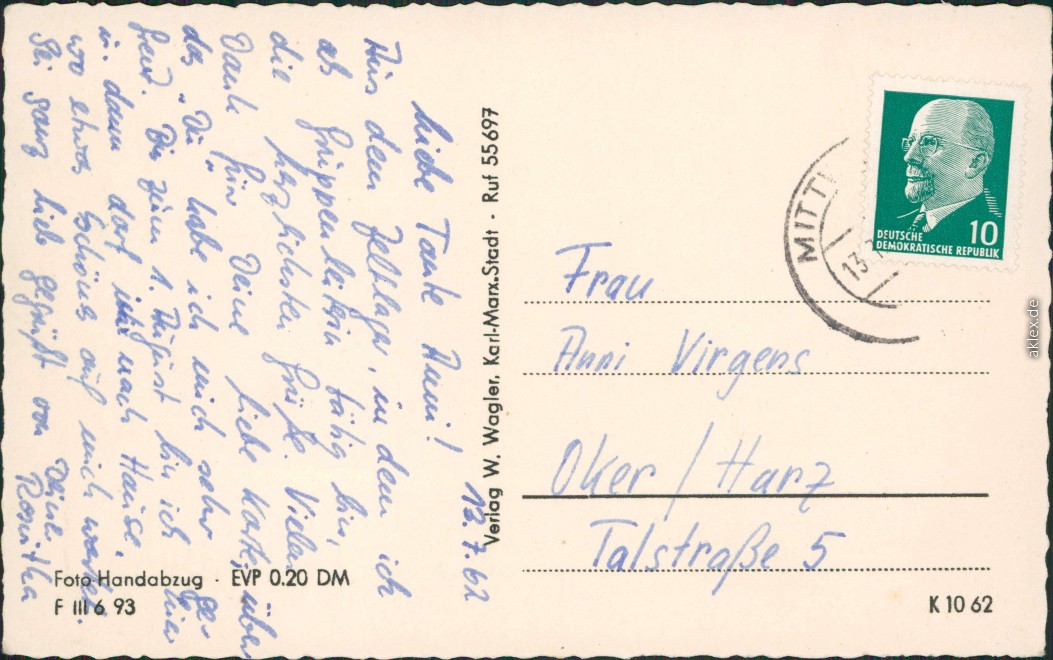 12.7.62
Liebe Tante Anni!
Aus dem Zeltlager, in dem ich
als Gruppenleiterin tätig bin,
die herzlichsten Grüße. Vielen
Dank für Deine liebe Karte, über
die ich mich sehr ge-
freut. Bis zum 1. August bin ich hier
u. dann darf ich nach Hause,
wo etwas Schönes auf mich wartet.
Sei ganz lieb gegrüßt von
Deiner
Rositha
Foto-Handabzug · EVP 0.20 DM
F III 6 93
Verlag W. Wagler, Karl-Marx-Stadt · Ruf 55697
MITTW
13.7
DEUTSCHE
DEMOKRATISCHE REPUBLIK
10
Frau
Anni Virgens
Oker / Harz
Talstraße 5
K 10 62
aklex.de